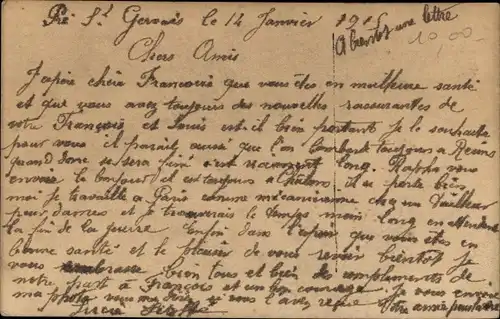 Pré St Gervais le 14 Janvier 191
A bientôt une lettre
10,00-
Chers Amis
J'espère chère Françoise que vous êtes en meilleure santé
et que vous avez toujours des nouvelles rassurantes de
votre François et Louis est-il bien portant je le souhaite
pour vous il parait aussi que l'on bombarde toujours a Reims
quand donc se sera fini c'est vraiment long. Rapha vous
envoie le bonjour il est toujours a Chalons il se porte bien
moi je travaille a Paris comme mécanicienne chez un Tailleur
pour dames et je trouverais le temps moin long en attendant
la fin de la guerre Enfin dans l'espoir que vous êtes en
bonne santé et le plaisir de vous revoir bientôt je
vous embrasse bien tous et bien de compliments de
notre part à François et un bon courage. Je vous envoie
ma photo vous me direz si vous l'avez reçue Votre amie
Lucie